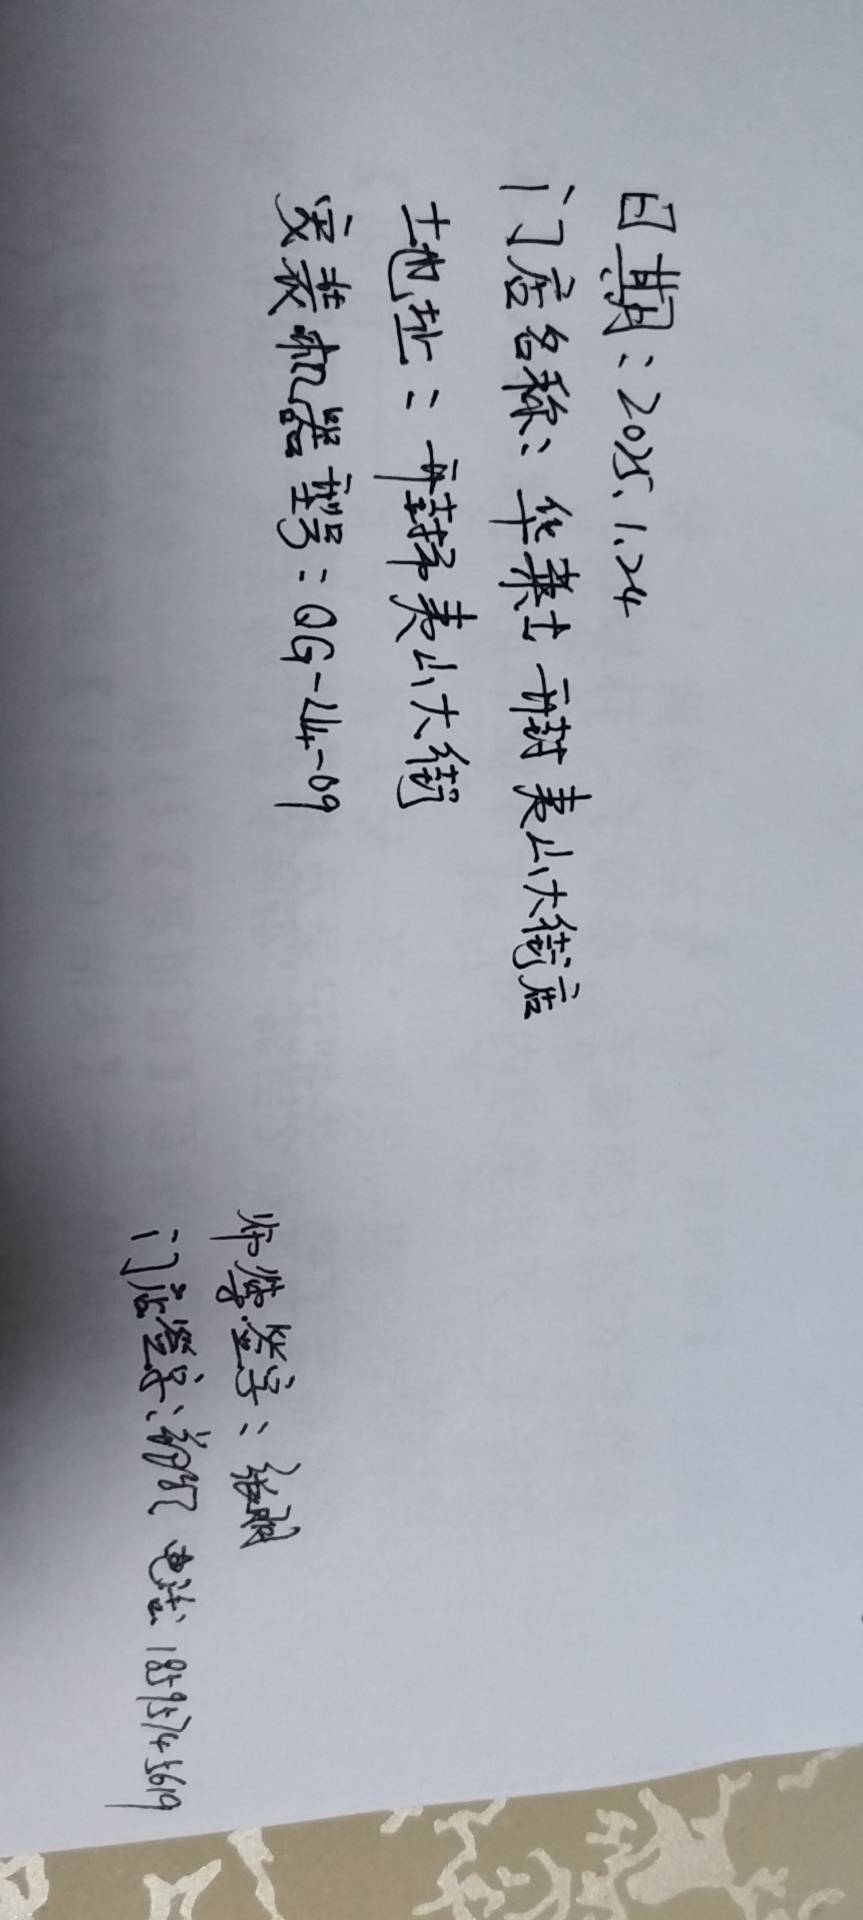 日期：2025.1.24
门店名称：华莱士开封夷山大街店
地址：开封市夷山大街
安装机器型号：QG-L4-09
师傅签字：张刚
门店签字： 电话：18595745619